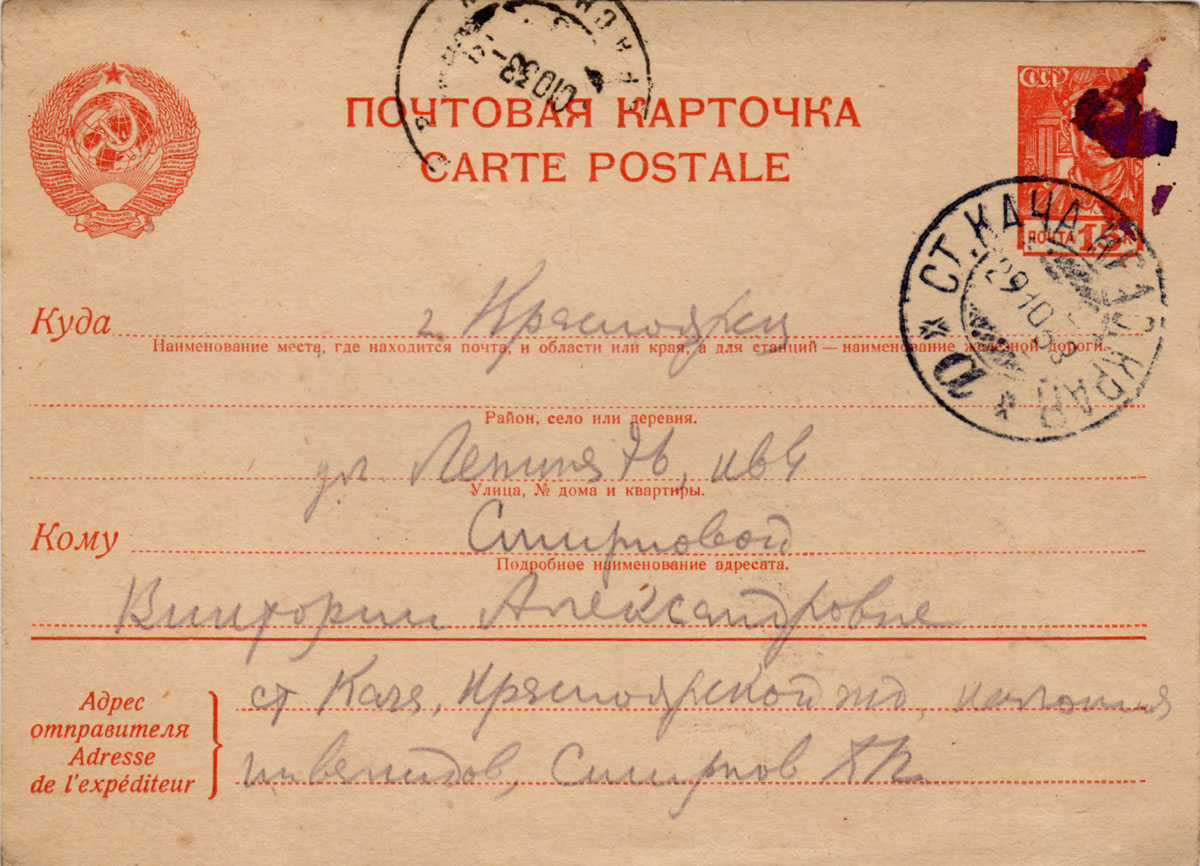 ПОЧТОВАЯ КАРТОЧКА
CARTE POSTALE
СССР
ПОЧТА 15 К
СТ. КАЧА КРАС. КРАЯ
29 10 38
Куда г. Красноярск
Наименование места, где находится почта, и области или края, а для станций — наименование железной дороги.
Район, село или деревня.
ул. Ленина 76, кв 4
Улица, № дома и квартиры.
Кому Смирновой
Подробное наименование адресата.
Виктории Александровне
Адрес отправителя
Adresse de l'expéditeur
ст Кача, Красноярской жд, колония
инвалидов, Смирнов